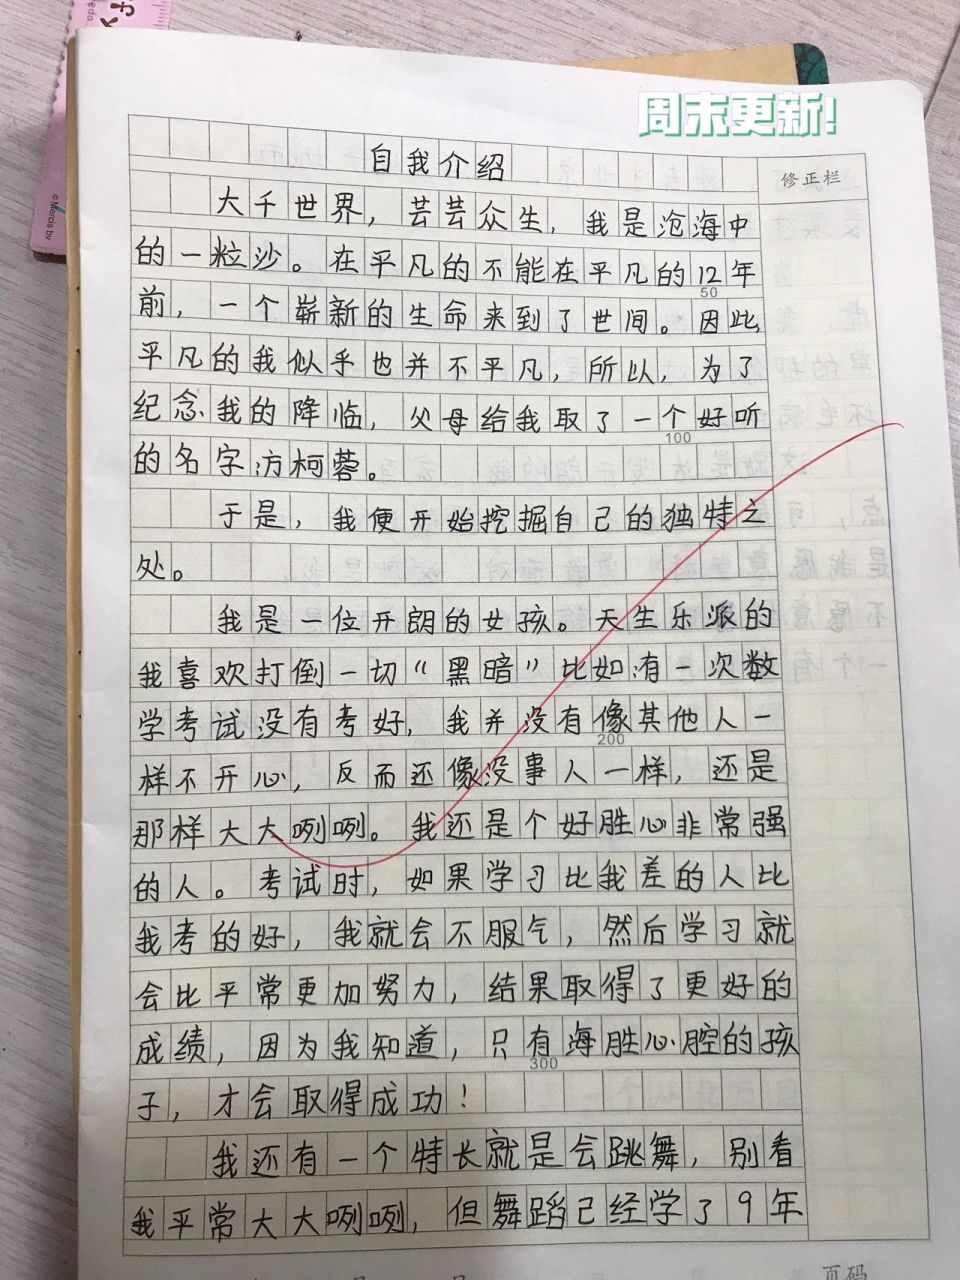 周末更新!
自我介绍
修正栏
大千世界，芸芸众生，我是沧海中
的一粒沙。在平凡的不能在平凡的12年
50
前，一个崭新的生命来到了世间。因此
平凡的我似乎也并不平凡，所以，为了
纪念我的降临，父母给我取了一个好听
100
的名字方柯蓉。
于是，我便开始挖掘自己的独特之
处。
我是一位开朗的女孩。天生乐派的
我喜欢打倒一切“黑暗”比如有一次数
学考试没有考好，我并没有像其他人一
200
样不开心，反而还像没事人一样，还是
那样大大咧咧。我还是个好胜心非常强
的人。考试时，如果学习比我差的人比
我考的好，我就会不服气，然后学习就
会比平常更加努力，结果取得了更好的
成绩，因为我知道，只有海胜心腔的孩
300
子，才会取得成功！
我还有一个特长就是会跳舞，别看
我平常大大咧咧，但舞蹈已经学了9年
页码